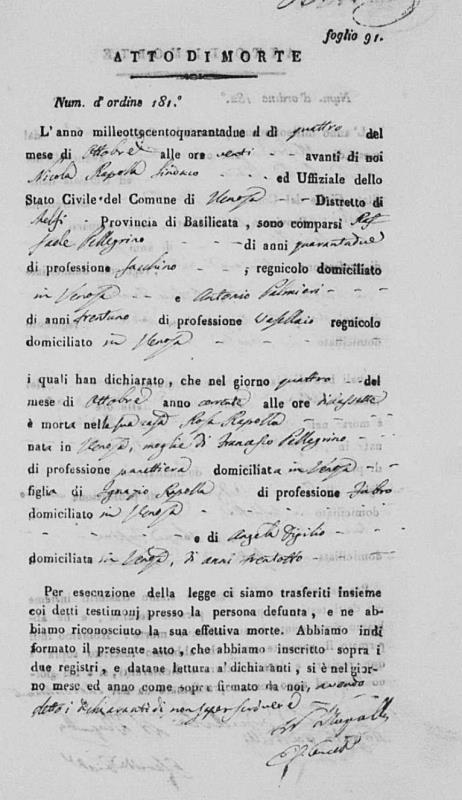 foglio 91.
ATTO DI MORTE
Num. d'ordine 181.°
L'anno milleottocentoquarantadue il dì quattro del
mese di Ottobre alle ore venti avanti di noi
Nicola Rapolla Sindaco ed Uffiziale dello
Stato Civile del Comune di Venosa Distretto di
Melfi Provincia di Basilicata, sono comparsi Raf
faele Pellegrino di anni quarantadue
di professione facchino , regnicolo domiciliato
in Venosa e Antonio Palmieri
di anni trentuno di professione Vasellaio regnicolo
domiciliato in Venosa
i quali han dichiarato, che nel giorno quattro del
mese di Ottobre anno corrente alle ore diciassette
è morta nella sua casa Rosa Rapolla
nata in Venosa, moglie di Francesco Pellegrino
di professione panettiera domiciliata in Venosa
figlia di Ignazio Rapolla di professione Fabro
domiciliato in Venosa
e di Angela
domiciliata in Venosa, di anni trentotto
Per esecuzione della legge ci siamo trasferiti insieme
coi detti testimonj presso la persona defunta, e ne ab-
biamo riconosciuto la sua effettiva morte. Abbiamo indi
formato il presente atto, che abbiamo inscritto sopra i
due registri, e datane lettura a' dichiaranti, si è nel gior-
no mese ed anno come sopra firmato da noi, avendo
detto i dichiaranti di non saper scrivere
N Rapolla